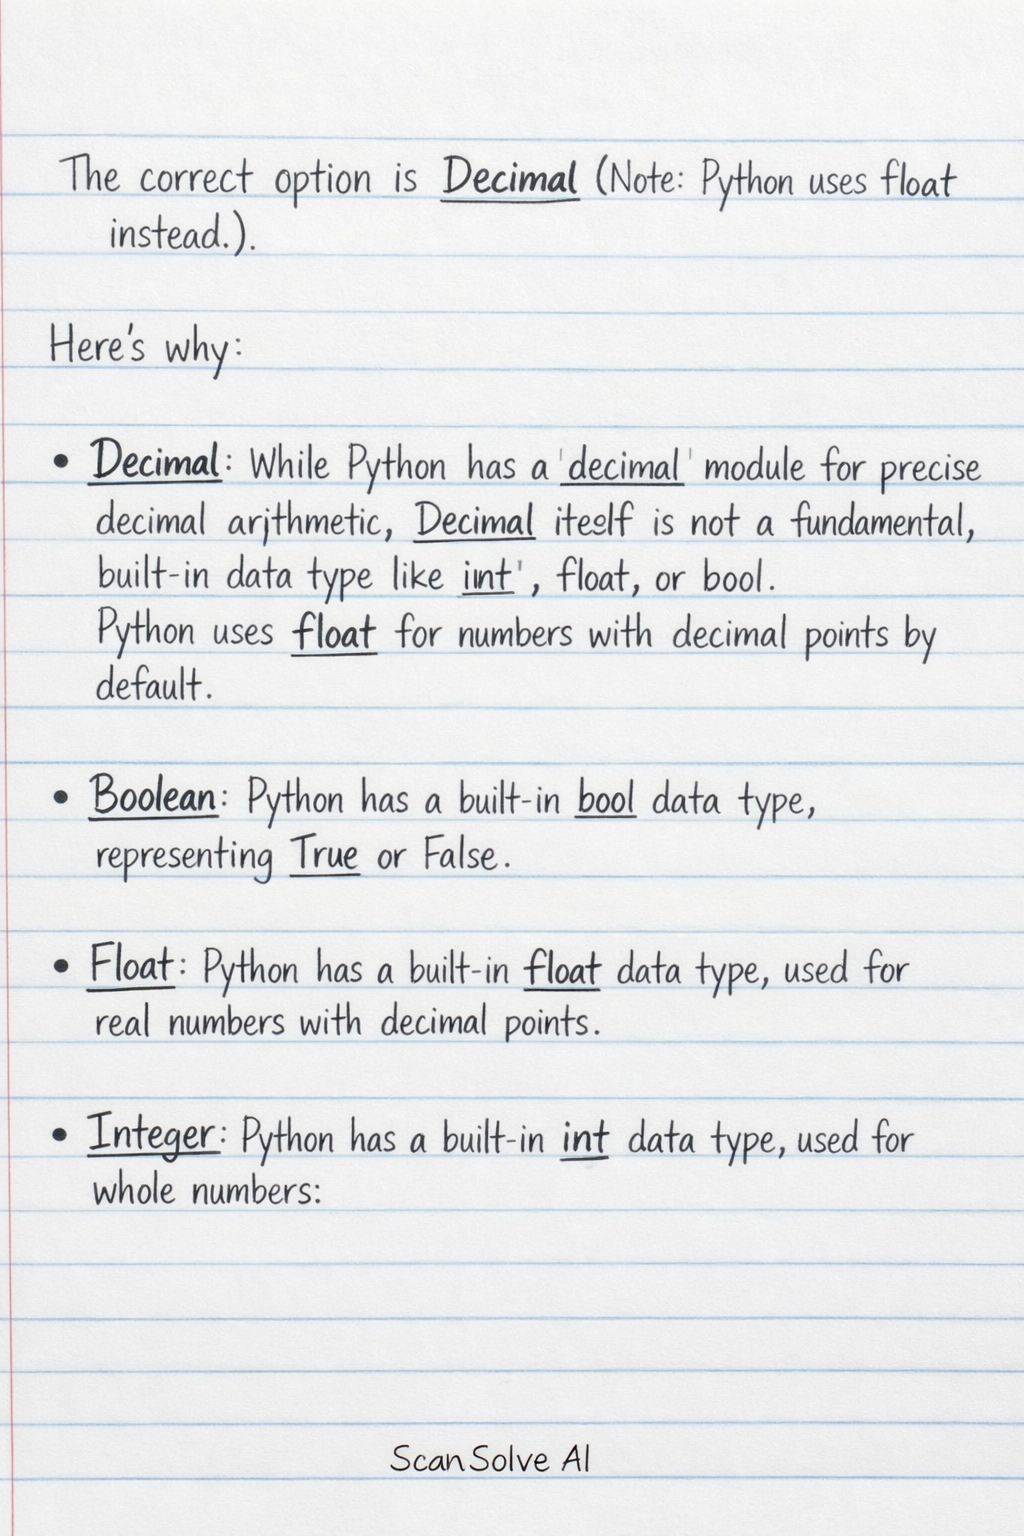 The correct option is Decimal (Note: Python uses float
instead.).
Here's why:
• Decimal: While Python has a 'decimal' module for precise
decimal arjthmetic, Decimal iteslf is not a fundamental,
built-in data type like int', float, or bool.
Python uses float for numbers with decimal points by
default.
• Boolean: Python has a built-in bool data type,
representing True or False.
• Float: Python has a built-in float data type, used for
real numbers with decimal points.
• Integer: Python has a built-in int data type, used for
whole numbers:
ScanSolve AI